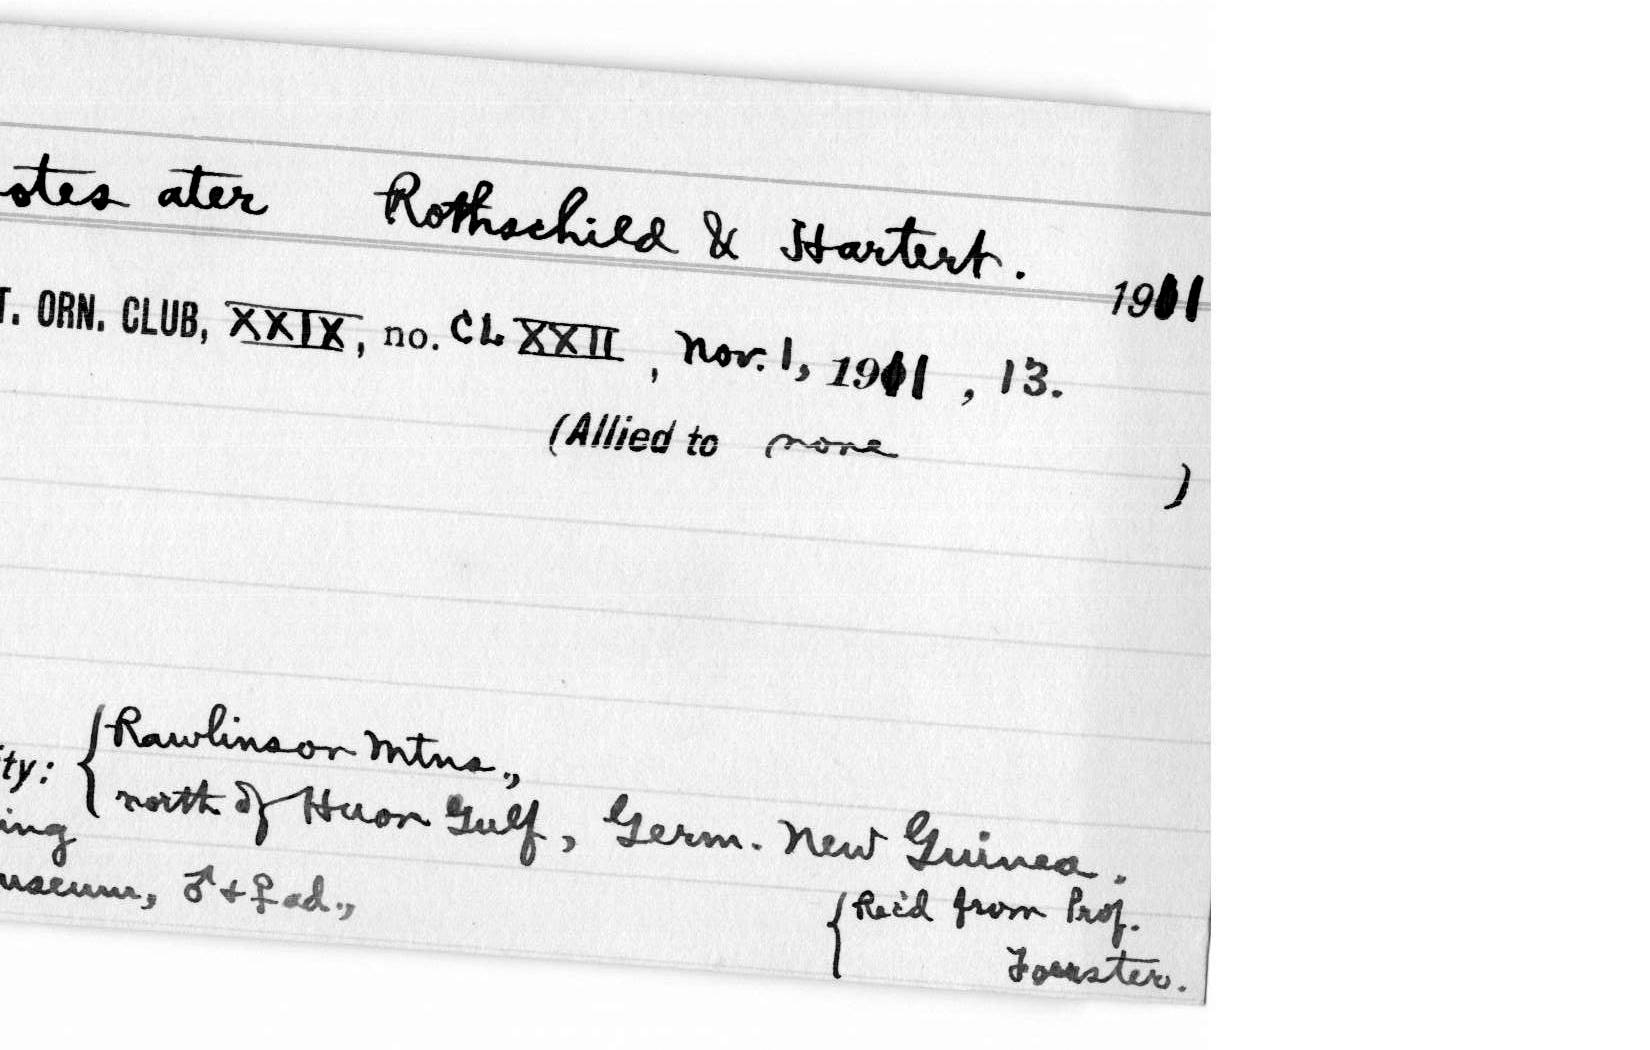 otes ater Rothschild & Hartert.
1911
T. ORN. CLUB, XXIX, no. CLXXII, Nov. 1, 1911, 13.
(Allied to none )
ity: { Rawlinson Mtns.,
north of Huon Gulf, Germ. New Guinea.
ing
useum, ♂ + ♀ ad.,
{ Rec'd from Prof.
Foerster.